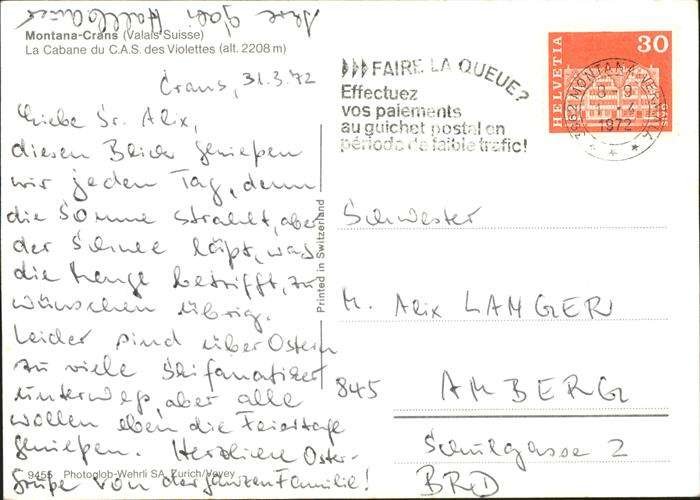 Ihre Gabi
Montana-Crans (Valais Suisse)
La Cabane du C.A.S. des Violettes (alt. 2208 m)
Crans, 31.3.72
Liebe Sr. Alix,
diesen Blick genießen
wir jeden Tag, denn
die Sonne strahlt, aber
der Schnee läßt, was
die Menge betrifft, zu
wünschen übrig.
Leider sind über Ostern
zu viele Skifanatiker
unterwegs, aber alle
wollen eben die Feiertage
genießen. Herzliche Oster-
grüße von der ganzen Familie!
9455 Photoglob-Wehrli SA, Zurich/Vevey
Printed in Switzerland
FAIRE LA QUEUE?
Effectuez
vos paiements
au guichet postal en
période de faible trafic!
HELVETIA 30
3962 MONTANA-VERMALA
8-9
1972
Schwester
M. Alix LANGER
845 AMBERG
Schulgasse 2
BRD